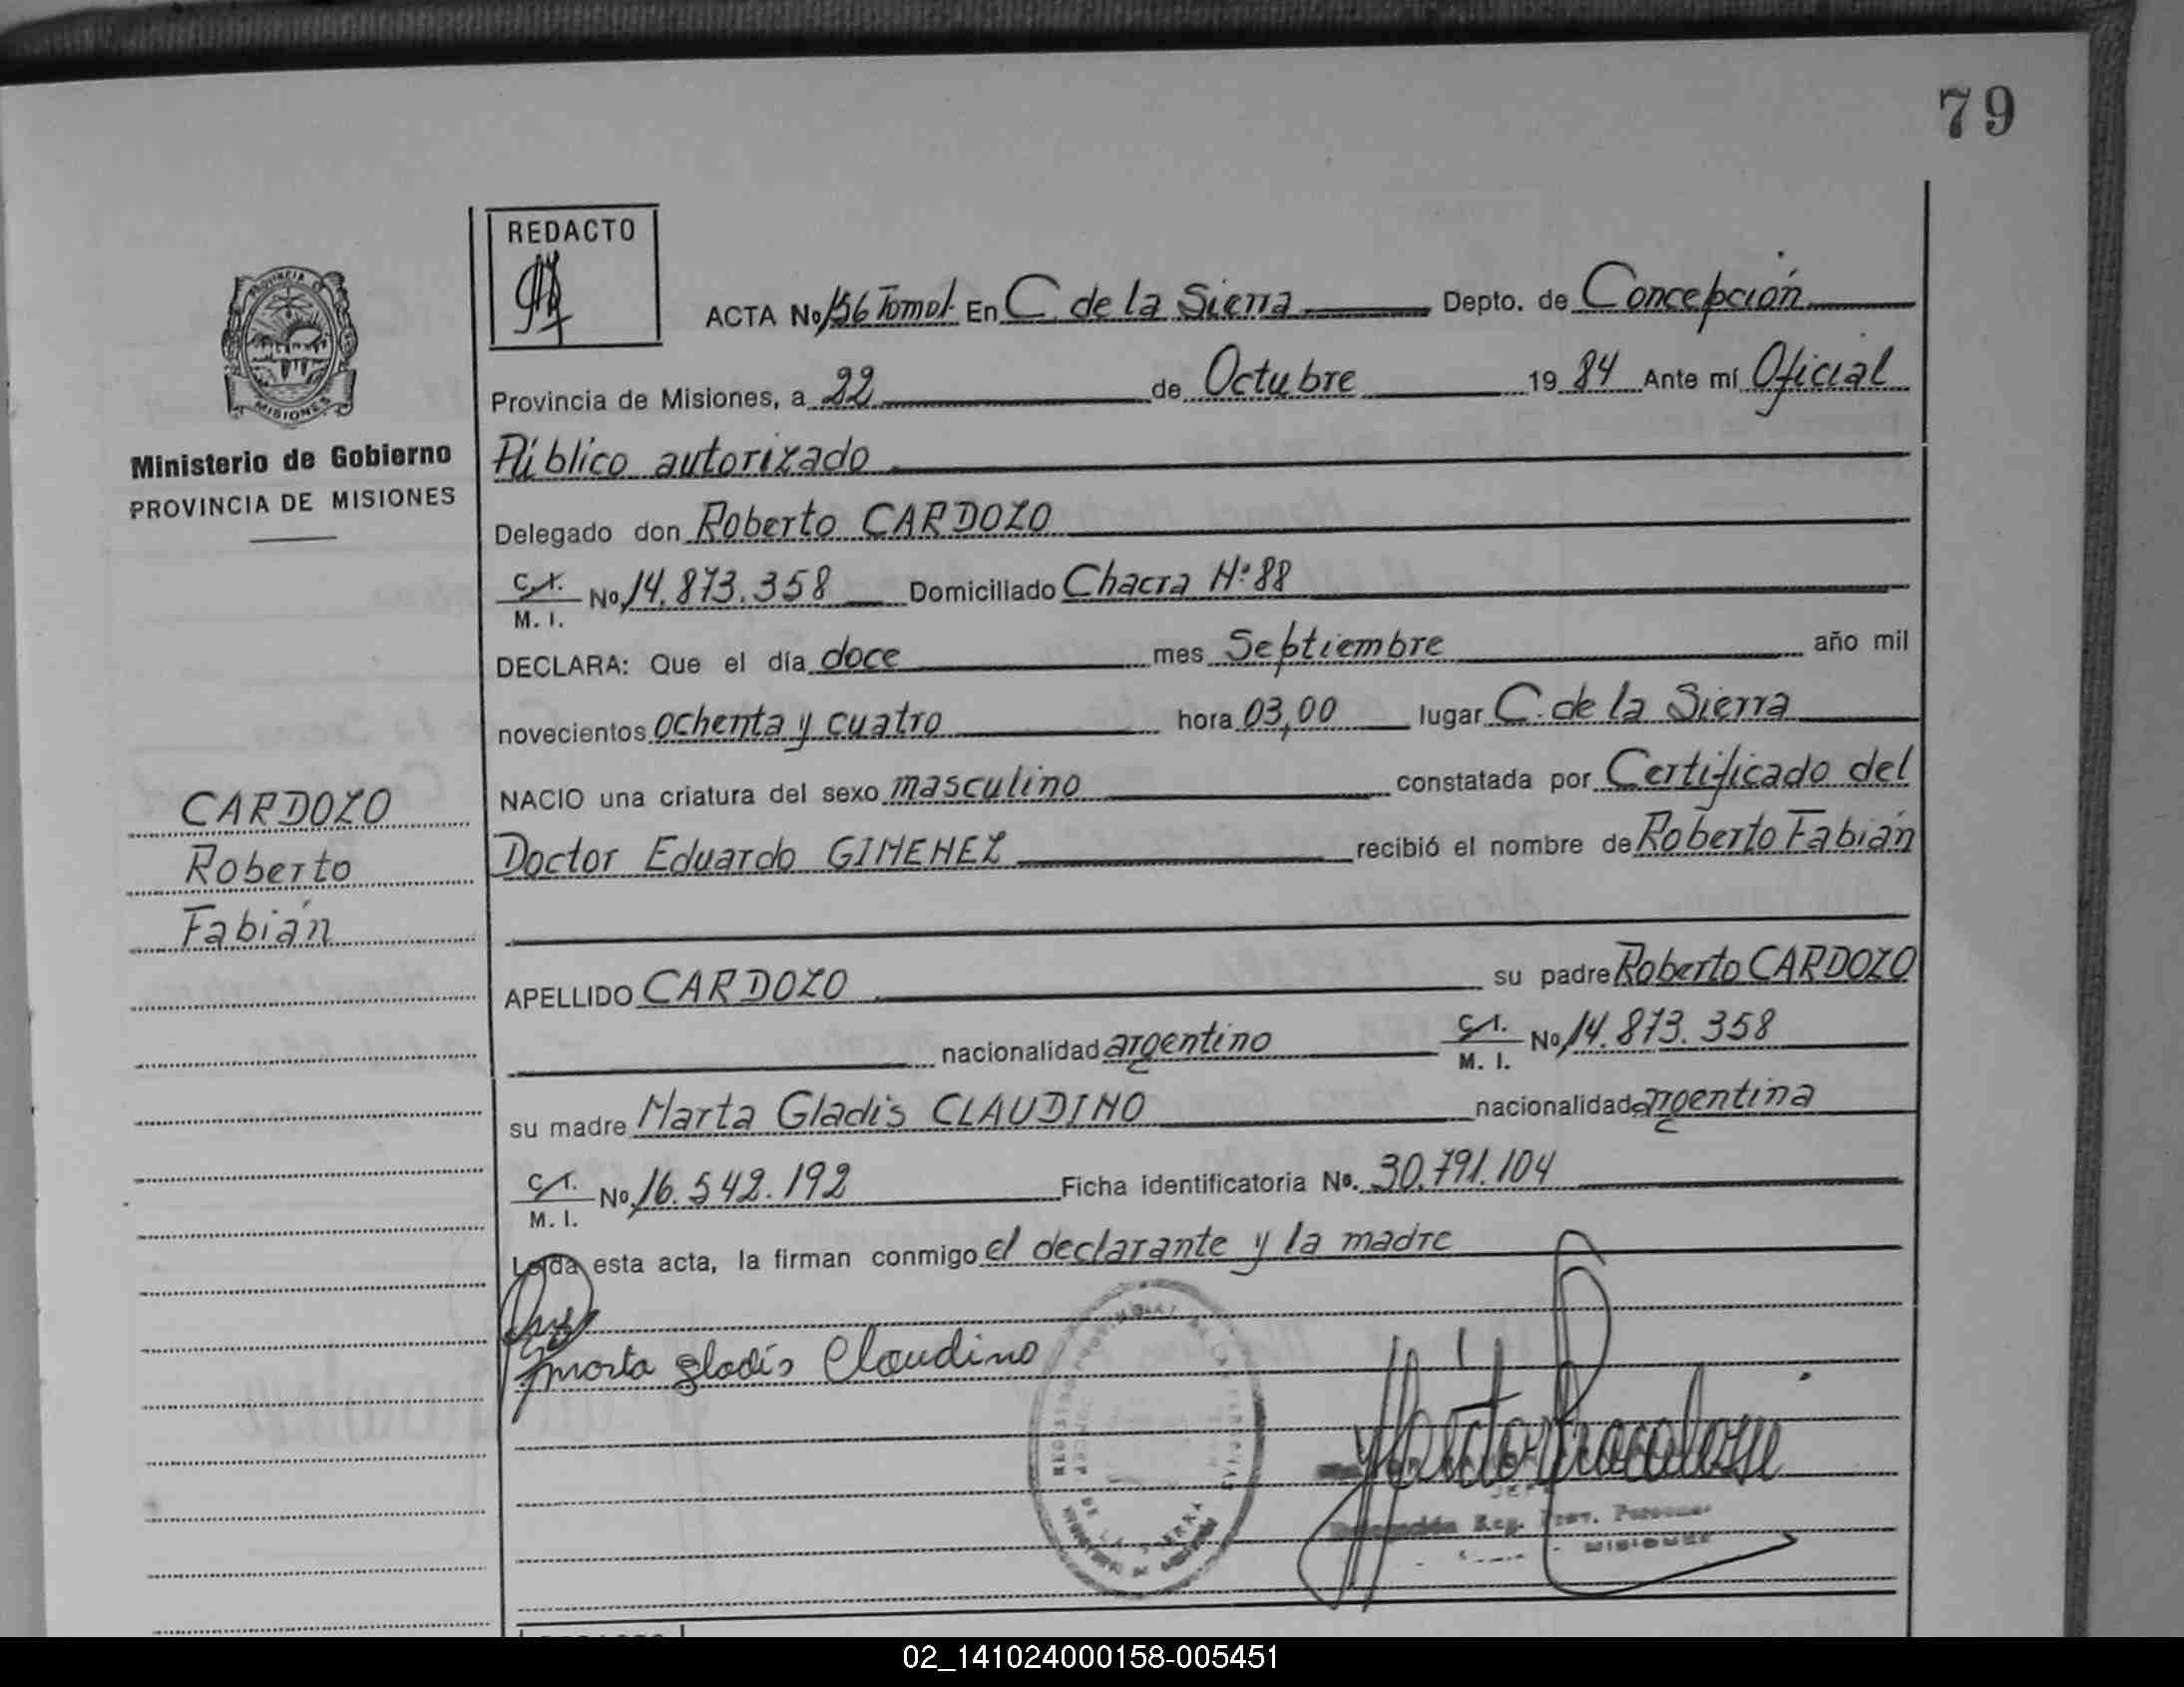 79
REDACTO
ACTA No 156 Tomo I. En C. de la Sierra Depto. de Concepción
Provincia de Misiones, a 22 de Octubre 19 84 Ante mí Oficial
Público autorizado
Delegado don Roberto CARDOZO
C. I. M. I. No 14.873.358 Domiciliado Chacra N:88
DECLARA: Que el día doce mes Septiembre año mil
novecientos ochenta y cuatro hora 03,00 lugar C. de la Sierra
NACIO una criatura del sexo masculino constatada por Certificado del
Doctor Eduardo GIMENEZ recibió el nombre de Roberto Fabián
APELLIDO CARDOZO su padre Roberto CARDOZO
nacionalidad argentino C. I. M. I. No 14.873.358
su madre Marta Gladis CLAUDINO nacionalidad argentina
C. I. M. I. No 16.542.192 Ficha identificatoria No. 30.791.104
Leída esta acta, la firman conmigo el declarante y la madre
marta gladis Claudino
JEFE
Delegación Reg. Prov. Personas
MISIONES
PROVINCIA D
MISIONES
Ministerio de Gobierno
PROVINCIA DE MISIONES
CARDOZO
Roberto
Fabián
DE LA SIERRA
02_141024000158-005451